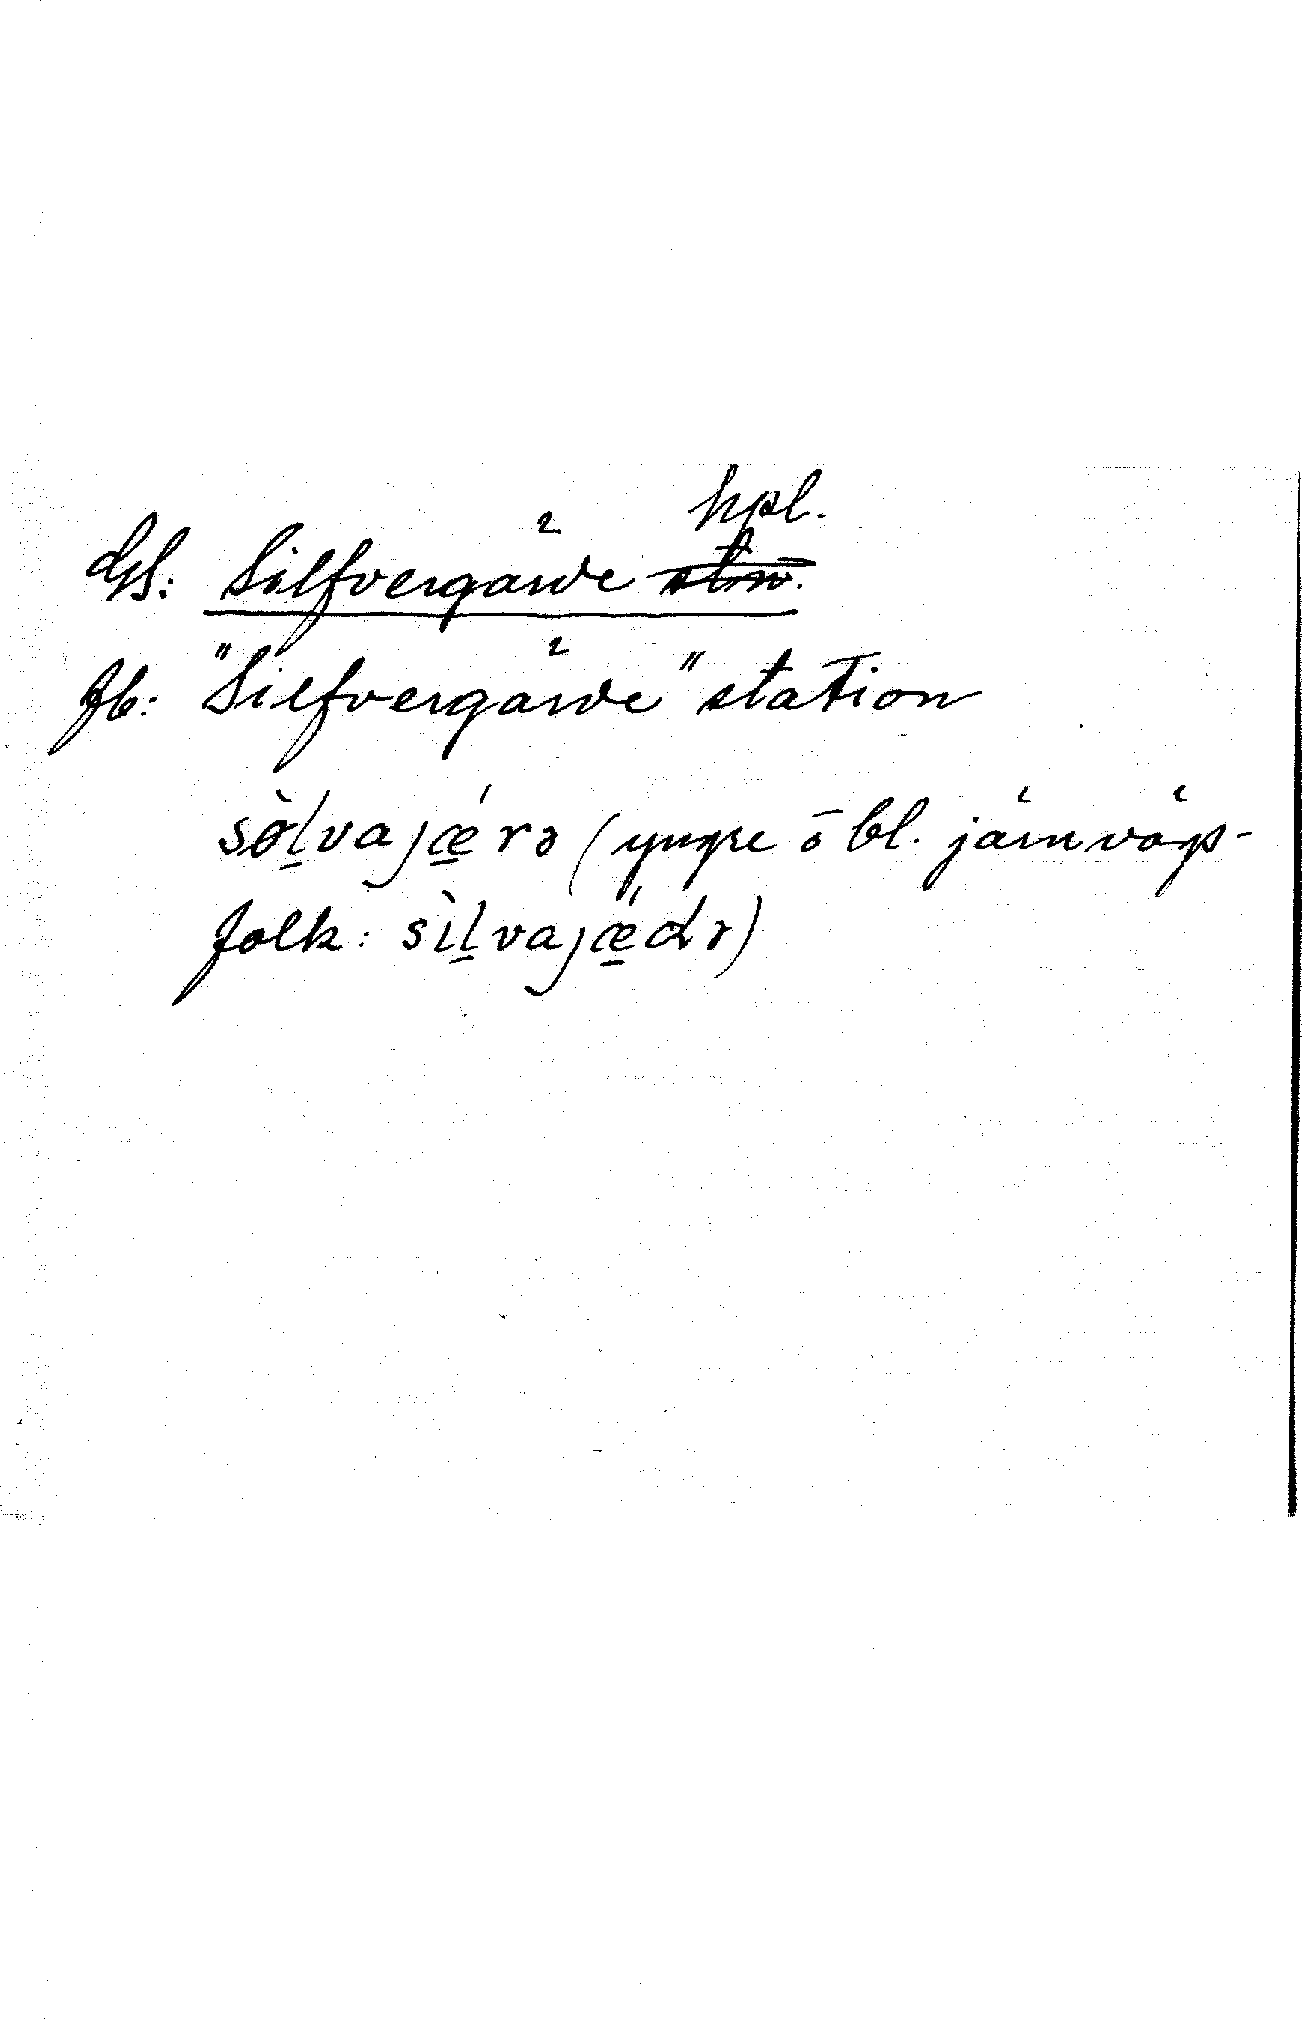 hpl.
Silfvergärde stn.
Jb: "Silfvergärde" station
sòlvajǽrə (yngre o bl. järnvägs-
folk: sìlvajǽdr)